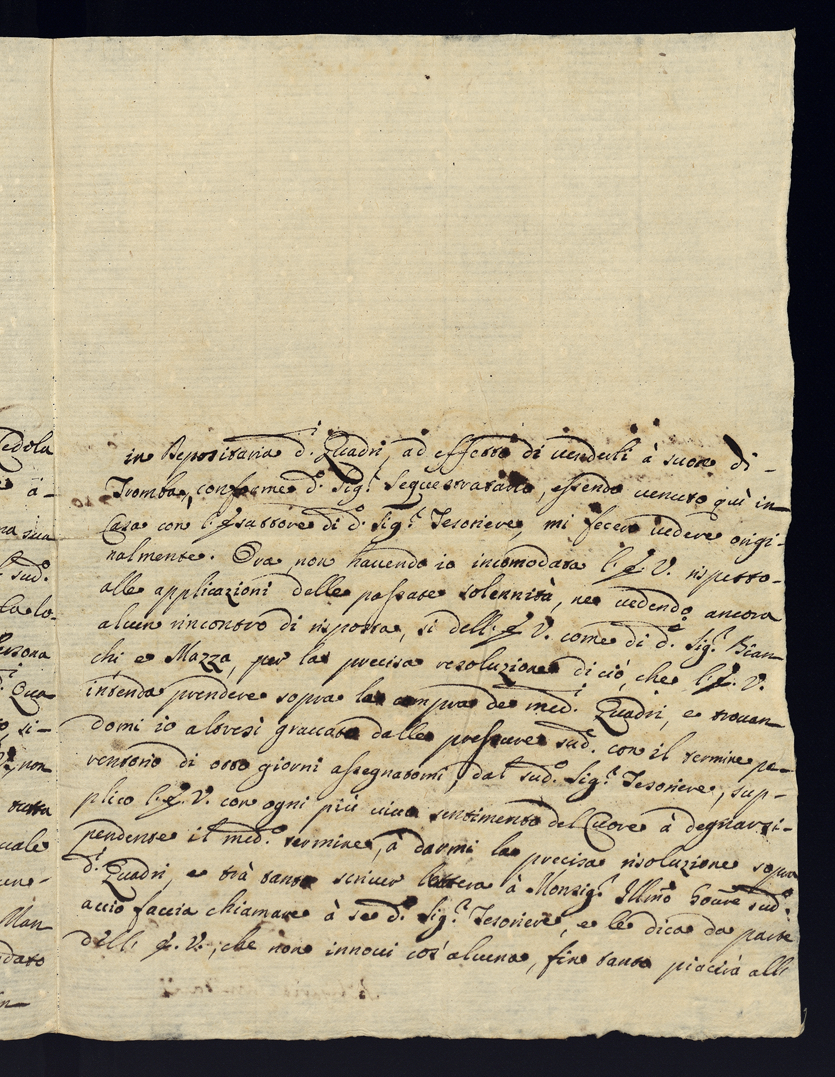 in Depositaria d.ⁱ Quadri, ad effetto di venderli à suon di
Tromba, conforme d.º Sig.ʳ Sequestratario, essendo venuto quì in
Casa con l'Esattore di d.º Sig.ʳ Tesoriere, mi fecero vedere origi-
nalmente. Ora non havendo io incomodata l'E. V. rispetto
alle applicazioni delle passate solennità, ne vedendo ancora
alcun rincontro di risposta, sì dell'E. V. come di d.º Sig.ʳ Bian
chi e Mazza, per la precisa resoluzione di ciò, che l'E. V.
intenda prendere sopra la compra de med.ⁱ Quadri, e trovan
domi io altresì graccata dalle pressure sud.ᵉ con il termine pe-
rentorio di otto giorni assegnatomi dal sud.º Sig.ʳ Tesoriere, sup-
plico l'E. V. con ogni più vivo sentimento del Cuore à degnarsi
pendente il med.º termine, à darmi la precisa risoluzione sopra
d.ⁱ Quadri, e trà tanto scriver lettera à Monsig.ʳ Illmo Govre sud.º
acciò faccia chiamare à se d.º Sig.ʳ Tesoriere, e le dica da parte
dell'E. V., che non innovi cos' alcuna, fin tanto piacerà all'
Cedola
e à-
na sua
sud.º
la lo-
Persona
Qua
o, si-
non
tutta
uale
Man
dato